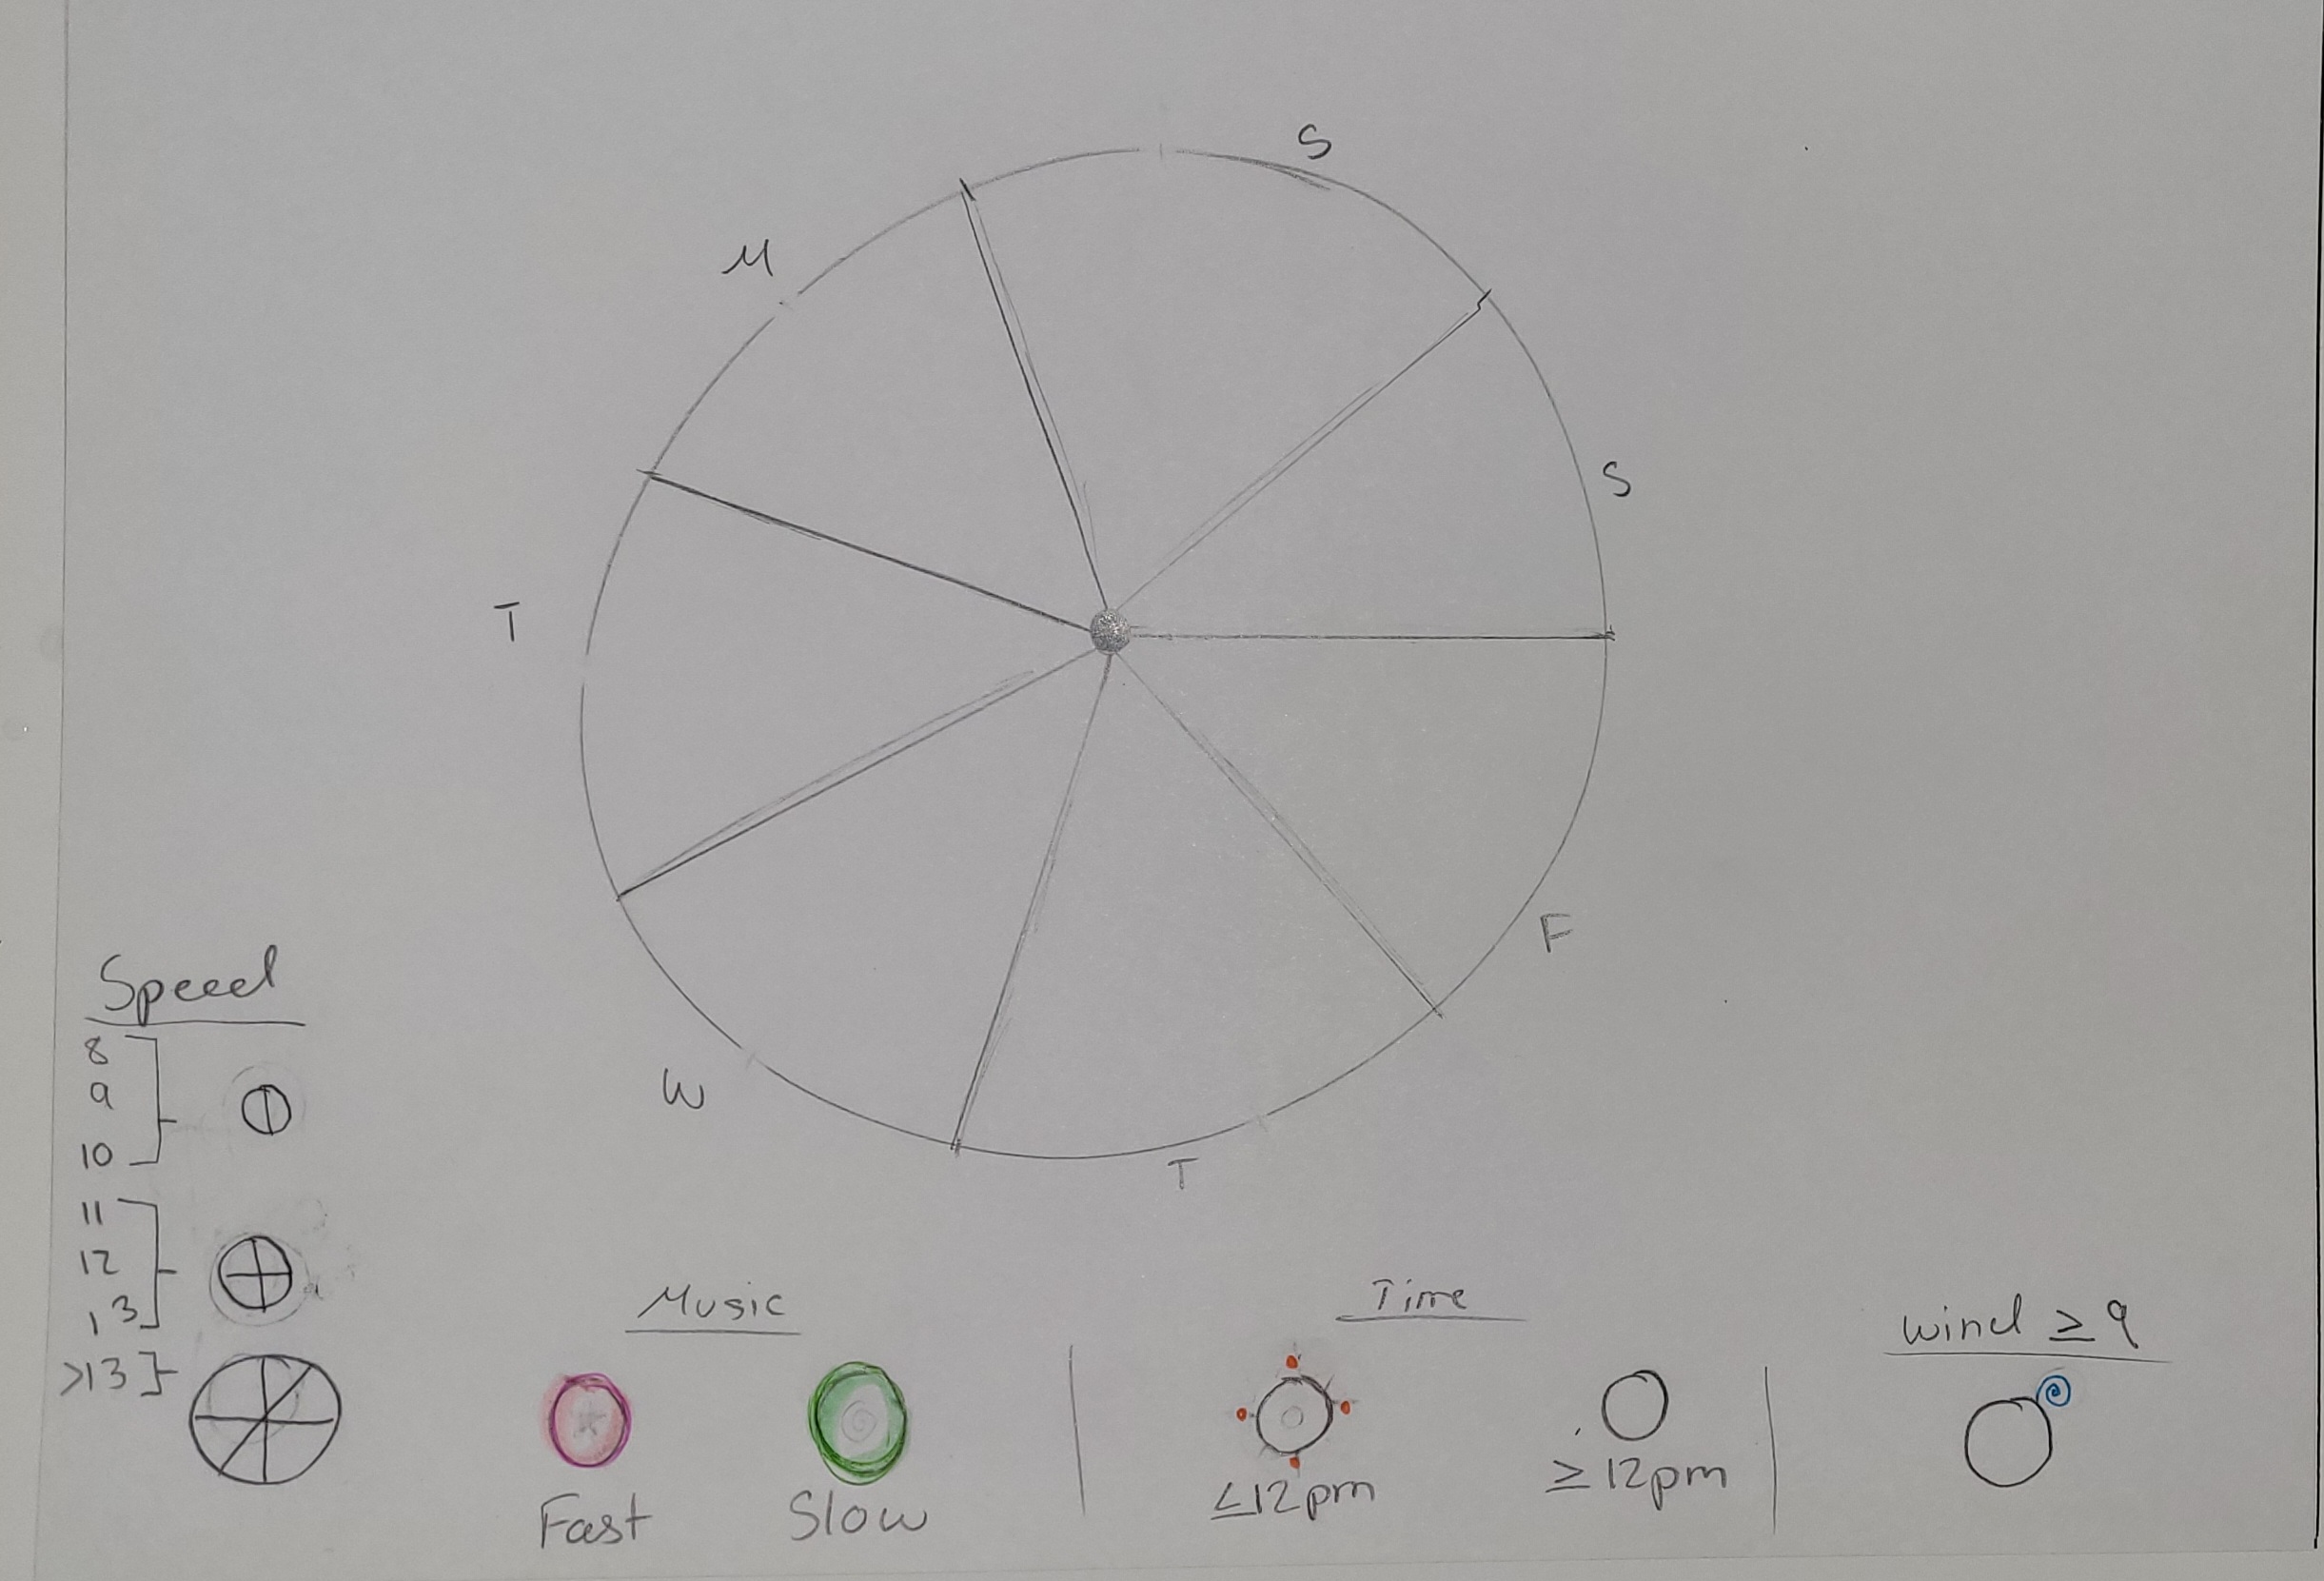 S
M
S
T
F
W
T
Speed
8
9
10
11
12
13
>13
Music
Fast
Slow
Time
≤12pm
≥12pm
Wind ≥ 9